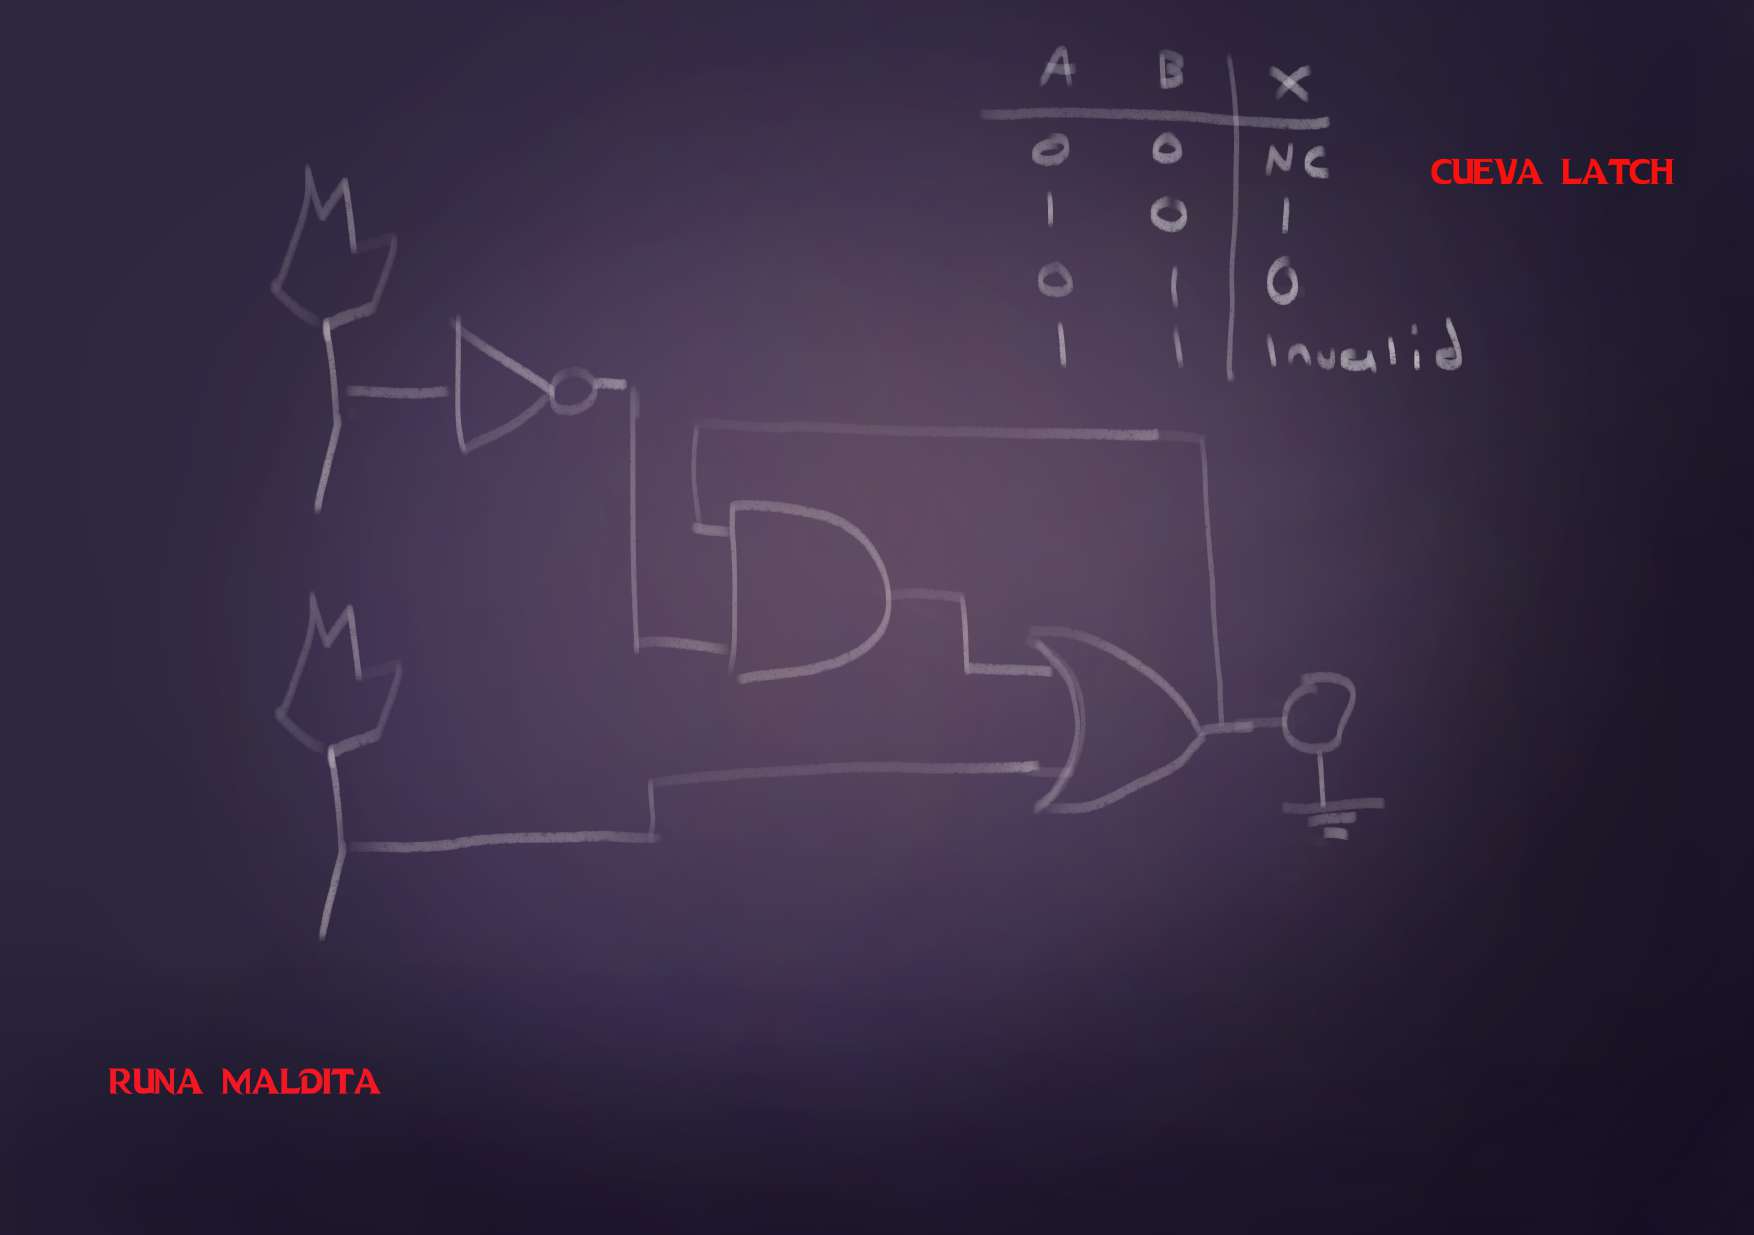 A B X
0 0 NC
1 0 1
0 1 0
1 1 Invalid
CUEVA LATCH
RUNA MALDITA